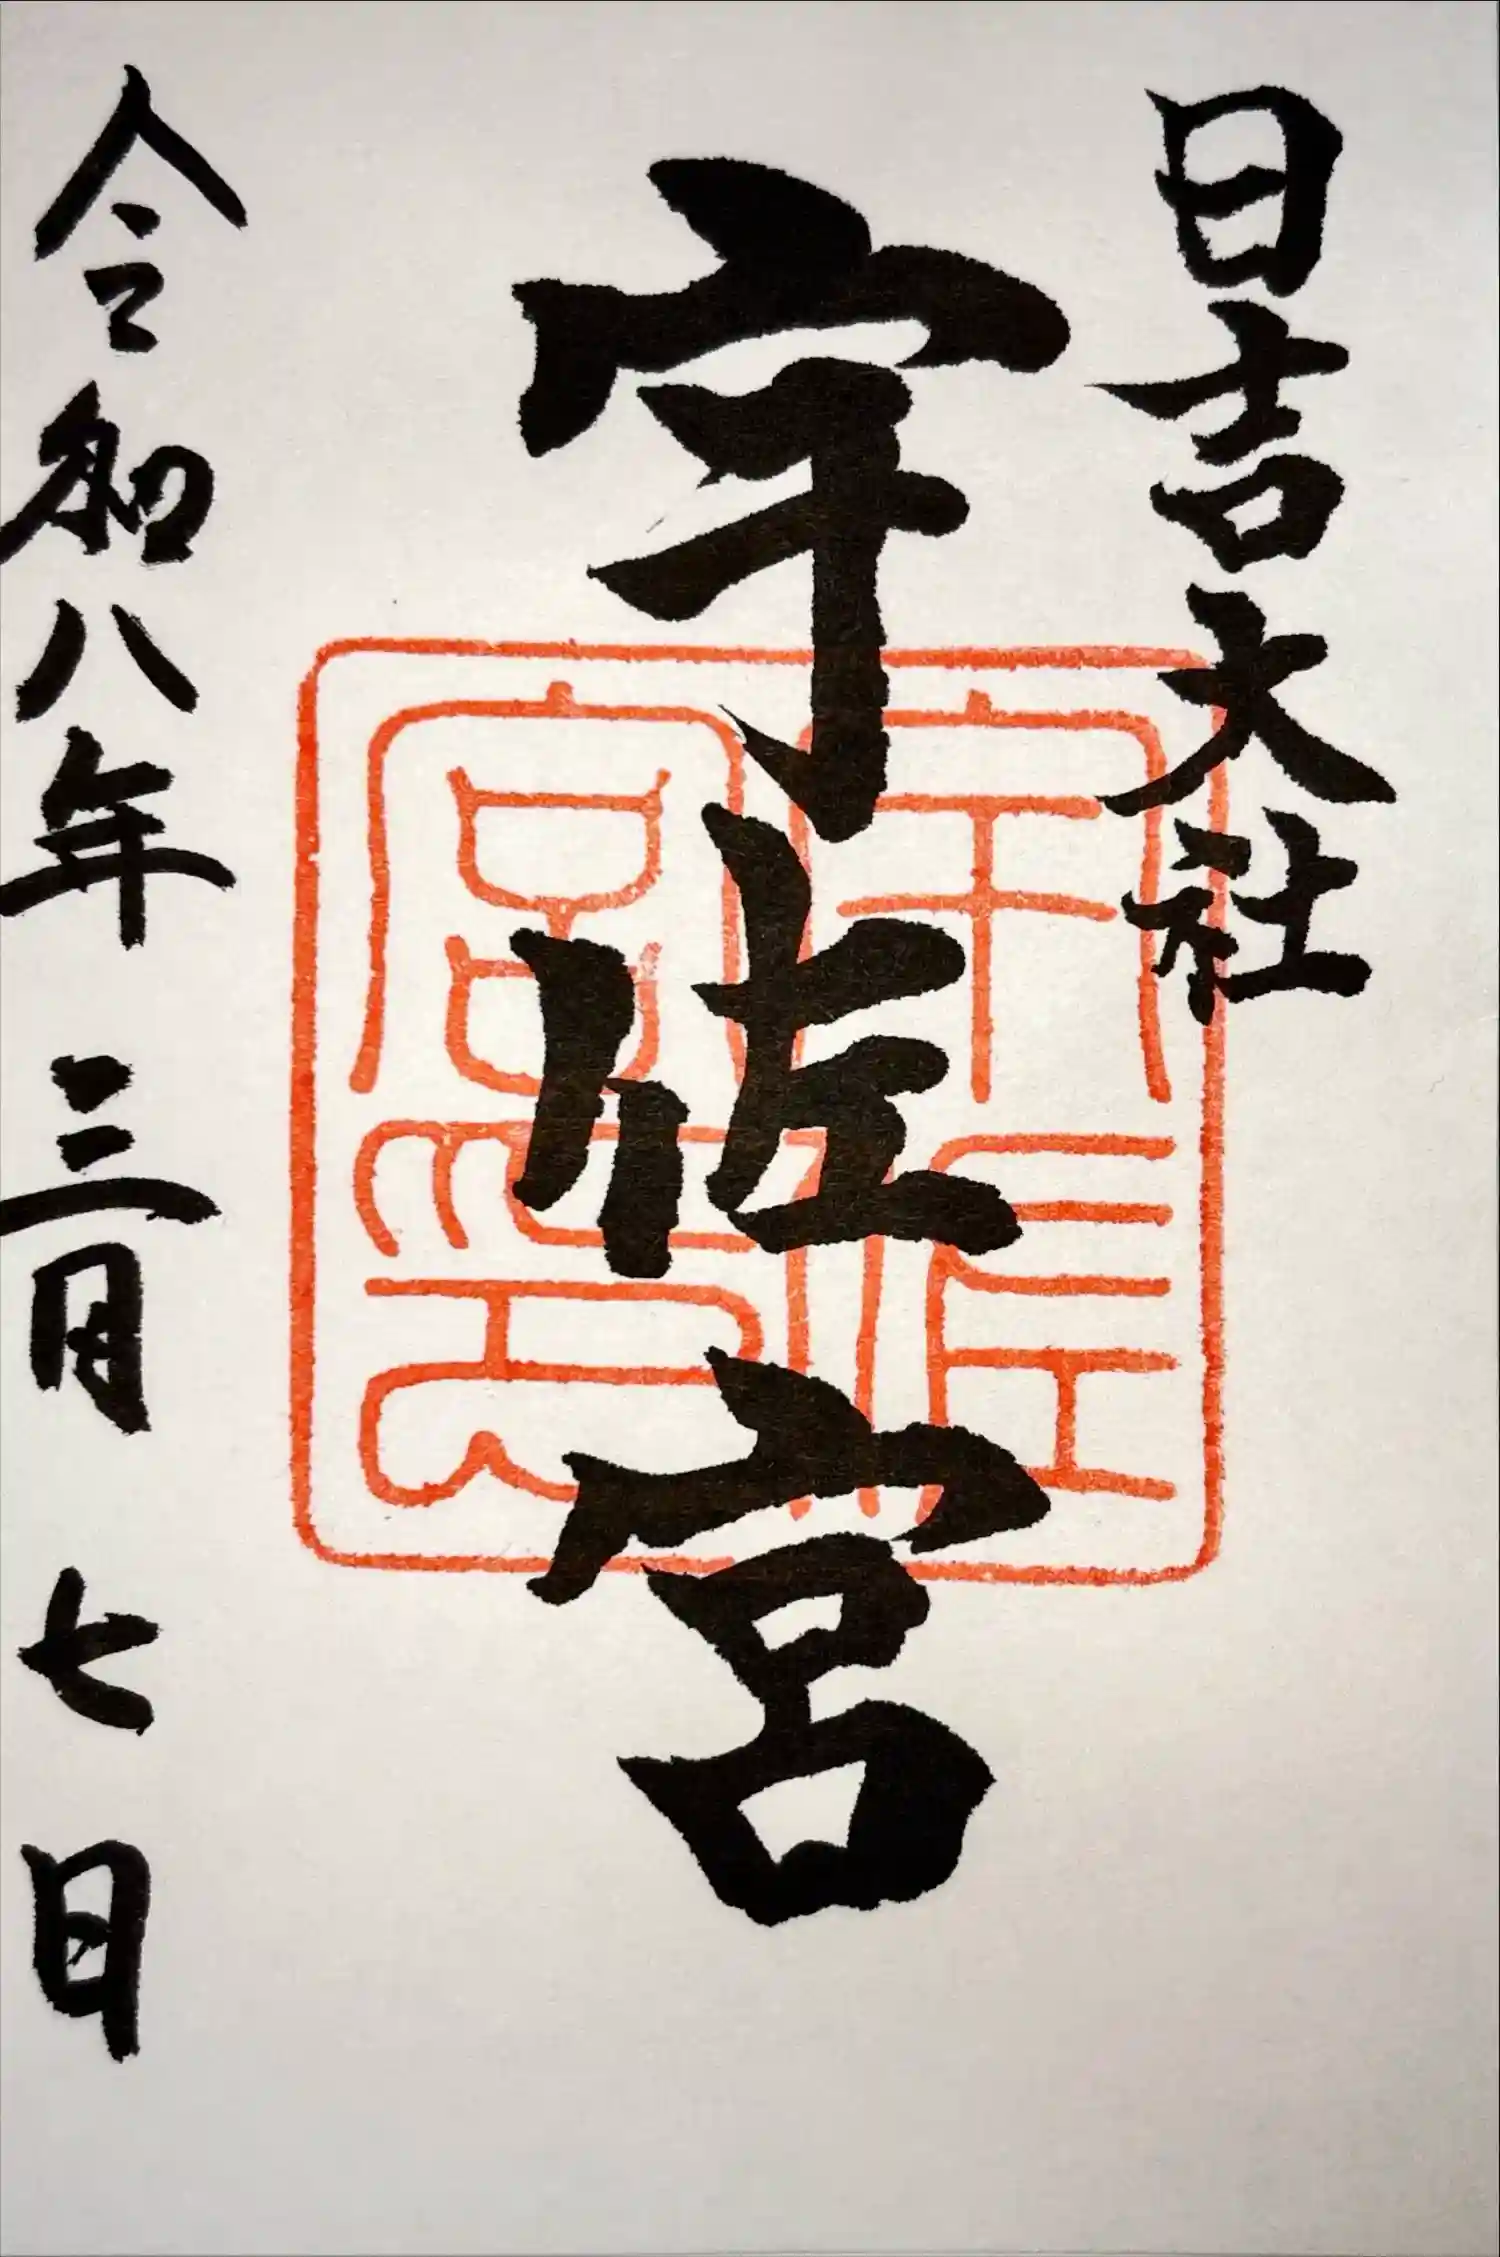 日吉大社
宇佐宮
宇佐宮印
令和八年 三月 七日